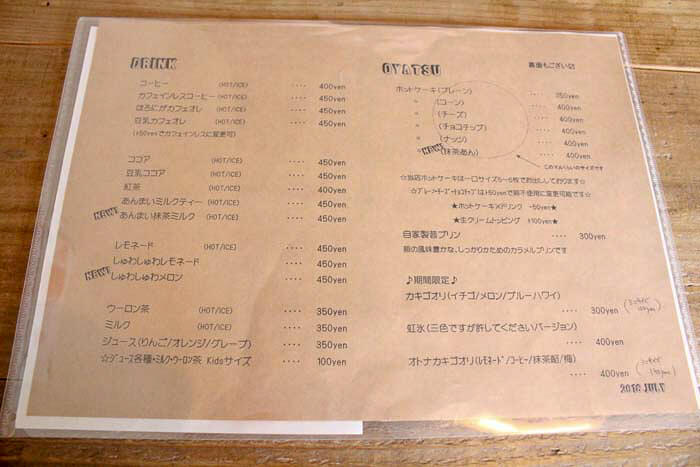 DRINK
コーヒー (HOT/ICE) ････ 400yen
カフェインレスコーヒー (HOT/ICE) ････ 450yen
ほろにがカフェオレ (HOT/ICE) ････ 450yen
豆乳カフェオレ (HOT/ICE) ････ 450yen
(+50yenでカフェインレスに変更可)
ココア (HOT/ICE) ････ 450yen
豆乳ココア (HOT/ICE) ････ 450yen
紅茶 (HOT/ICE) ････ 400yen
あんまいミルクティー (HOT/ICE) ････ 450yen
NEW! あんまい抹茶ミルク (HOT/ICE) ････ 450yen
レモネード (HOT/ICE) ････ 450yen
しゅわしゅわレモネード ････ 450yen
NEW! しゅわしゅわメロン ････ 450yen
ウーロン茶 (HOT/ICE) ････ 350yen
ミルク (HOT/ICE) ････ 350yen
ジュース(りんご/オレンジ/グレープ) ････ 350yen
☆ジュース各種・ミルク・ウーロン茶 Kidsサイズ ････ 100yen
OYATSU
裏面もござい〼
ホットケーキ(プレーン) ････ 350yen
〃 (コーン) ････ 400yen
〃 (チーズ) ････ 400yen
〃 (チョコチップ) ････ 400yen
〃 (ナッツ) ････ 400yen
NEW! 〃 (抹茶あん) ････ 400yen
このマルくらいのサイズです
☆当店ホットケーキは一口サイズ5~6枚でお出ししております☆
☆プレーン・チーズ・チョコチップは+50yenで卵不使用に変更可能です☆
★ホットケーキ×ドリンク -50yen★
★生クリームトッピング +100yen★
自家製昔プリン ････ 300yen
卵の風味豊かな、しっかりかためのカラメルプリンです
♪期間限定♪
カキゴオリ(イチゴ/メロン/ブルーハワイ)
････ 300yen
虹氷(三色ですが許してくださいバージョン)
････ 400yen
オトナカキゴオリ(レモネード/コーヒー/抹茶/梅)
････ 400yen
2016 JULY